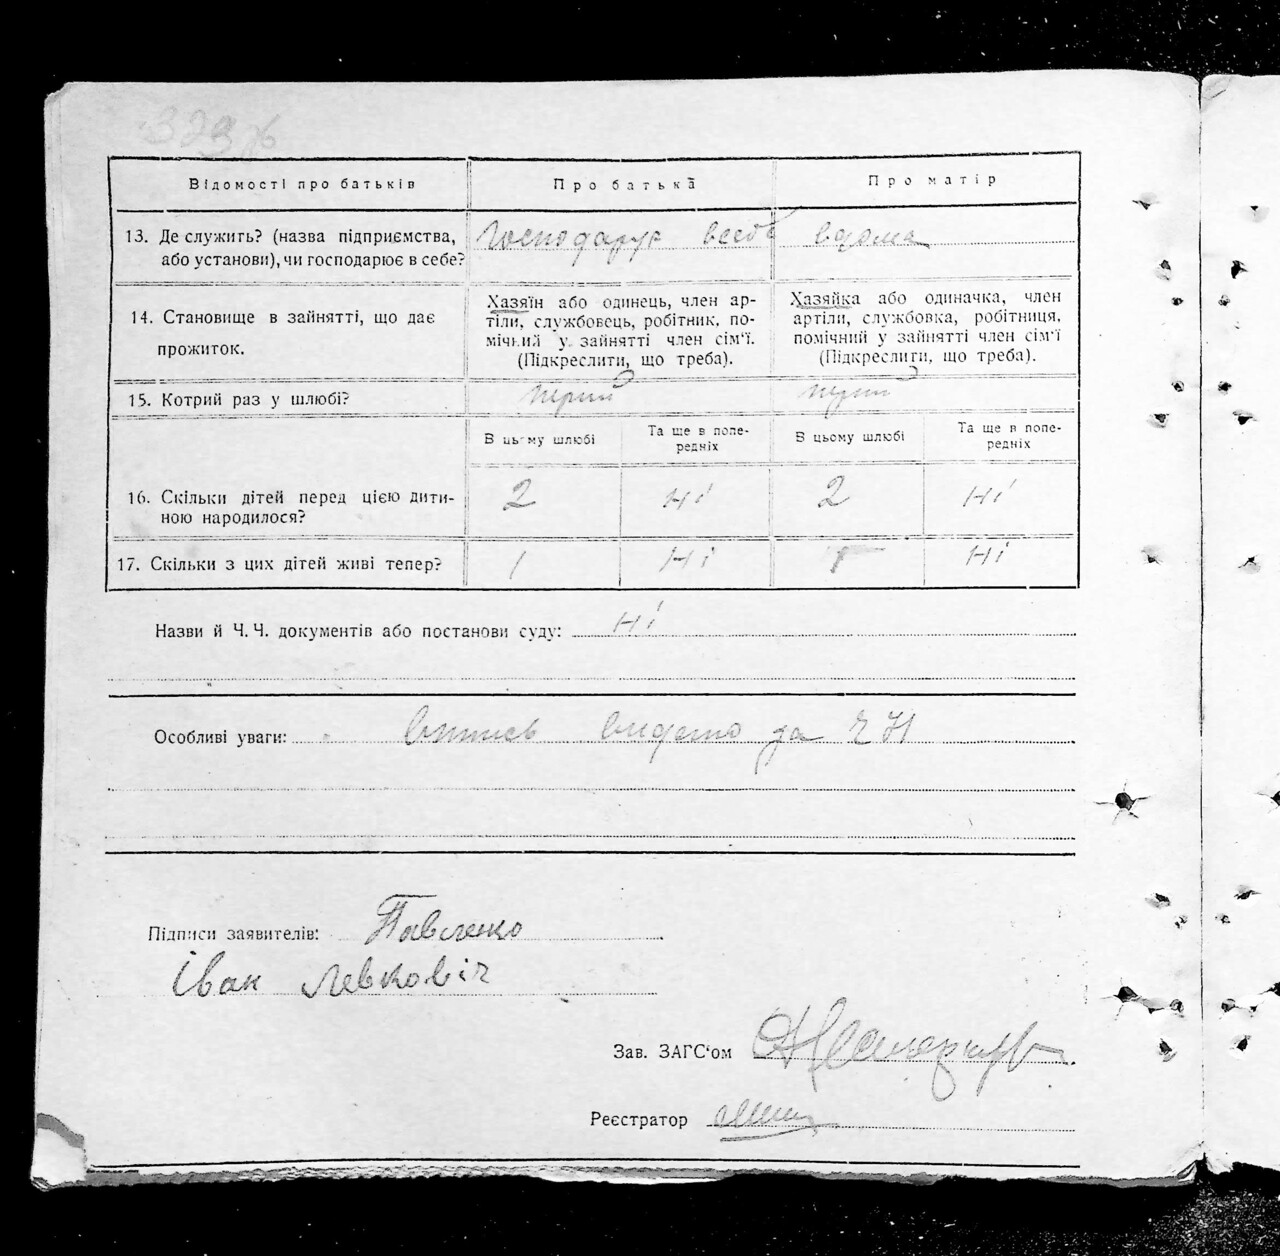 Відомості про батьків Про батька Про матір
13. Де служить? (назва підприємства, або установи), чи господарює в себе?
Господарує всебе вдома
14. Становище в зайнятті, що дає прожиток.
Хазяїн або одинець, член ар-
тіли, службовець, робітник, по-
мічний у зайнятті член сім'ї.
(Підкреслити, що треба).
Хазяйка або одиначка, член
артіли, службовка, робітниця,
помічний у зайнятті член сім'ї
(Підкреслити, що треба).
15. Котрий раз у шлюбі? перший перший
В цьому шлюбі Та ще в попе-редніх В цьому шлюбі Та ще в попе-редніх
16. Скільки дітей перед цією дити-
ною народилося? 2 ні 2 ні
17. Скільки з цих дітей живі тепер? 1 ні 1 ні
Назви й Ч. Ч. документів або постанови суду: ні
Особливі уваги: видано за
Підписи заявителів: Павленко
Іван Левковіч
Зав. ЗАГС'ом
Реєстратор